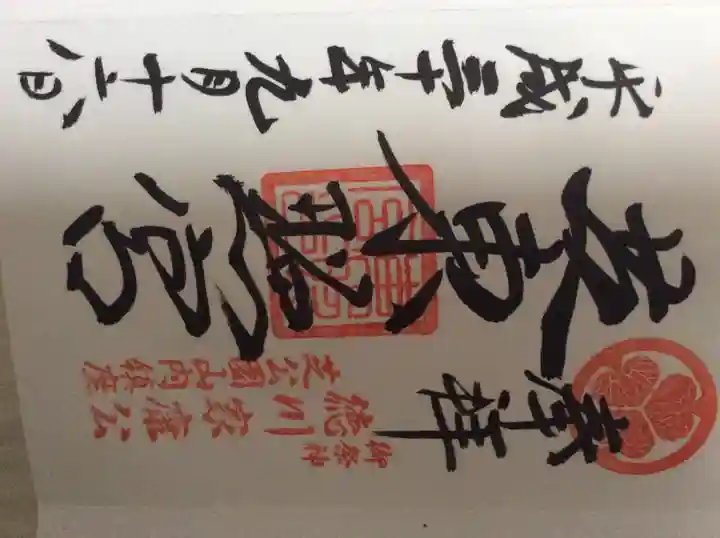 奉拝
御祭神
徳川家康公
芝公園山内鎮座
芝東照宮
平成三十年九月十六日